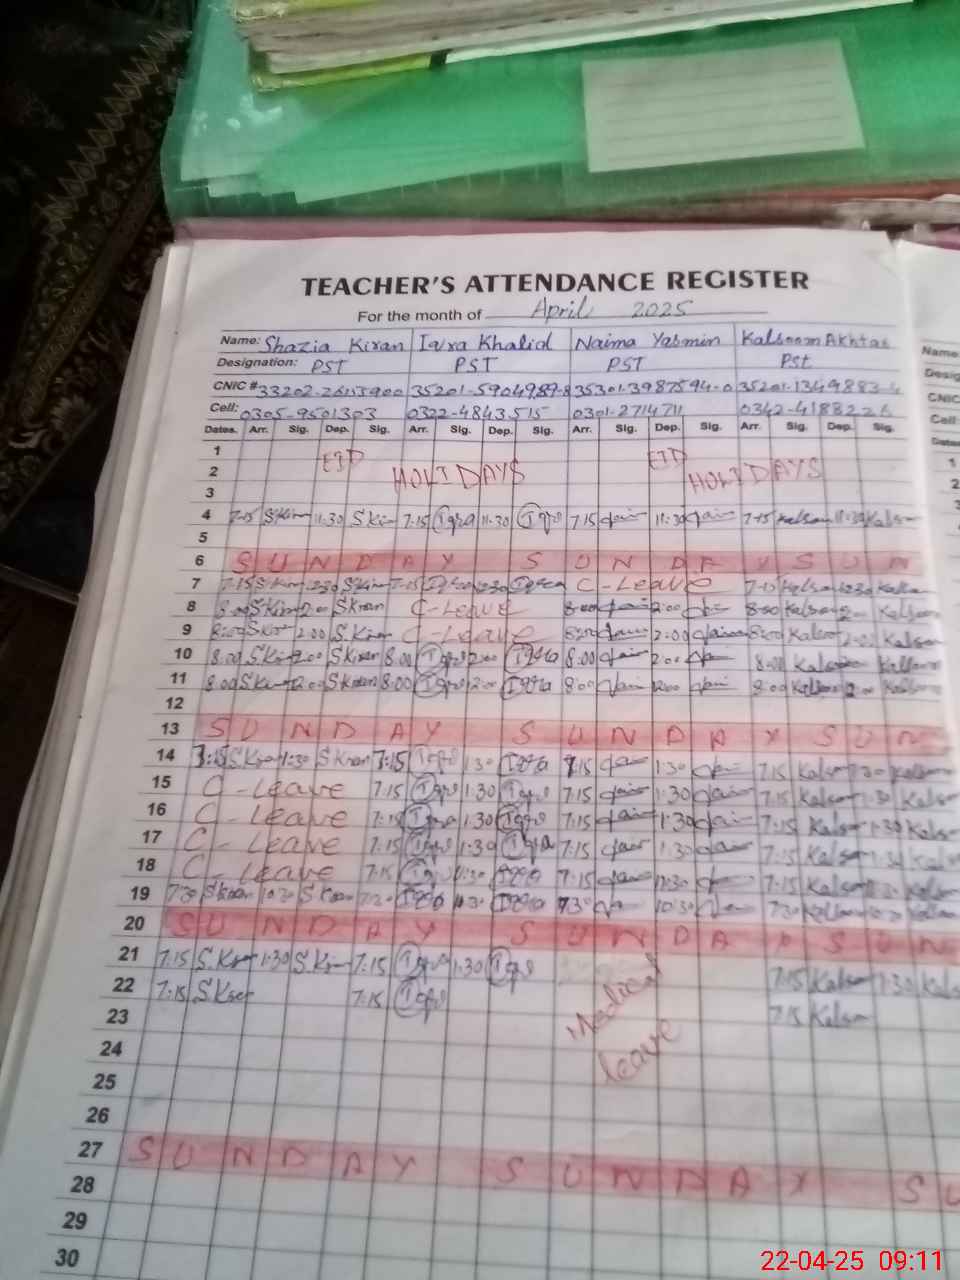 TEACHER'S ATTENDANCE REGISTER
For the month of April 2025
Name: Shazia Kiran Iqra Khalid Naima Yasmin Kalsoom Akhtar Name
Designation: PST PST PST Pst Desig
CNIC # 33202-2613900 35201-5904989-8 35301-3987594-0 35201-1349883-4 CNIC
Cell: 0305-9501303 0322-4843515 0301-2714711 0342-4188226 Cell:
Dates. Arr. Sig. Dep. Sig. Arr. Sig. Dep. Sig. Arr. Sig. Dep. Sig. Arr. Sig. Dep. Sig. Dates
1 EID EID 1
2 HOLIDAYS HOLIDAYS 2
3 3
4 7:15 S.Kiran 11:30 S.Kiran 7:15 Iqra 11:30 Iqra 7:15 11:30 7:15 Kalsoom 11:30 Kalsoom 4
5
6 SUNDAY SUNDAY SUN
7 7:15 S.Kiran 12:30 S.Kiran 7:15 Iqra 12:30 Iqra C-Leave 7:15 Kalsoom 12:30 Kalsoom
8 8:00 S.Kiran 2:00 S.Kiran C-Leave 8:00 2:00 8:00 Kalsoom 2:00 Kalsoom
9 8:00 S.Kiran 2:00 S.Kiran C-Leave 8:00 2:00 8:00 Kalsoom 2:00 Kalsoom
10 8:00 S.Kiran 2:00 S.Kiran 8:00 Iqra 2:00 Iqra 8:00 2:00 8:00 Kalsoom Kalsoom
11 8:00 S.Kiran 2:00 S.Kiran 8:00 Iqra 2:00 Iqra 8:00 2:00 8:00 Kalsoom 2:00 Kalsoom
12
13 SUNDAY SUNDAY SUN
14 7:15 S.Kiran 1:30 S.Kiran 7:15 Iqra 1:30 Iqra 7:15 1:30 7:15 Kalsoom 1:30 Kalsoom
15 C-Leave 7:15 Iqra 1:30 Iqra 7:15 1:30 7:15 Kalsoom 1:30 Kalsoom
16 C-Leave 7:15 Iqra 1:30 Iqra 7:15 1:30 7:15 Kalsoom 1:30 Kalsoom
17 C-Leave 7:15 Iqra 1:30 Iqra 7:15 1:30 7:15 Kalsoom 1:30 Kalsoom
18 C-Leave 7:15 Iqra 11:30 Iqra 7:15 11:30 7:15 Kalsoom Kalsoom
19 7:30 S.Kiran 10:30 S.Kiran 7:30 Iqra Iqra 7:30 10:30 7:30 Kalsoom 10:30 Kalsoom
20 SUNDAY SUNDAY SUN
21 7:15 S.Kiran 1:30 S.Kiran 7:15 Iqra 1:30 Iqra Medical leave 7:15 Kalsoom 1:30 Kalsoom
22 7:15 S.Kiran 7:15 Iqra 7:15 Kalsoom
23
24
25
26
27 SUNDAY SUNDAY SU
28
29
30
22-04-25 09:11